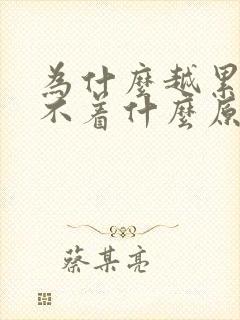 為什麼越累
不着什麼原
蔡某亮